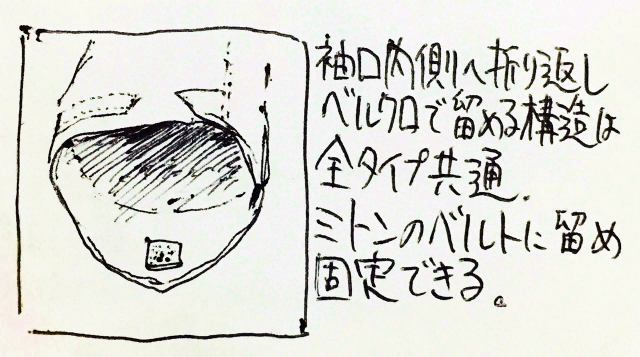 袖口内側へ折り返し
ベルクロで留める構造は
全タイプ共通.
ミトンのベルトに留め
固定できる。